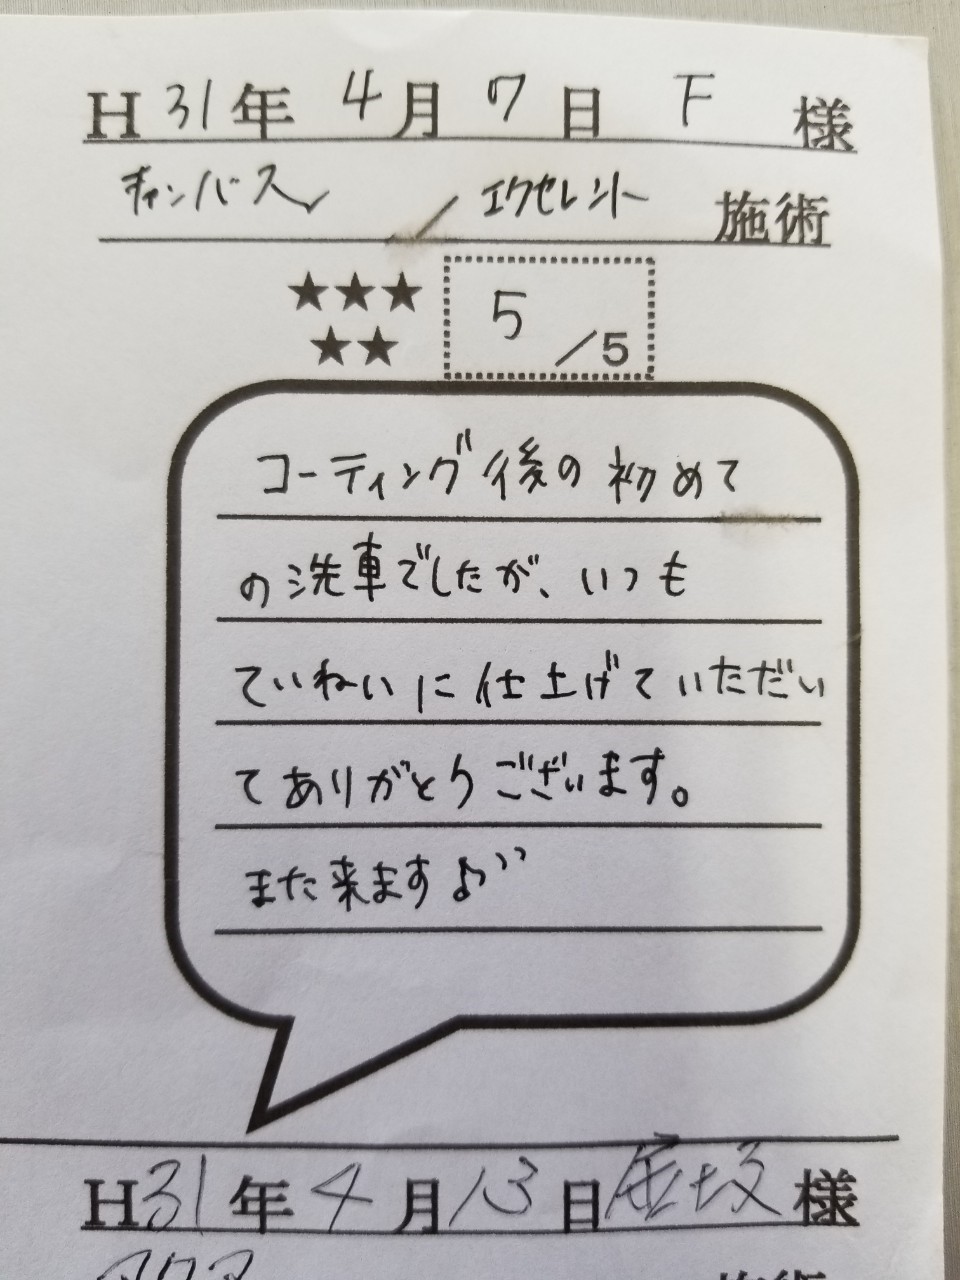 H31年 4月 7日 F 様
キャンバス / エクセレント 施術
★★★
★★
5 /5
コーティング後の初めて
の洗車でしたが、いつも
ていねいに仕上げていただい
てありがとうございます。
また来ます♪
H31年 4月 13日 様
アクア 施術